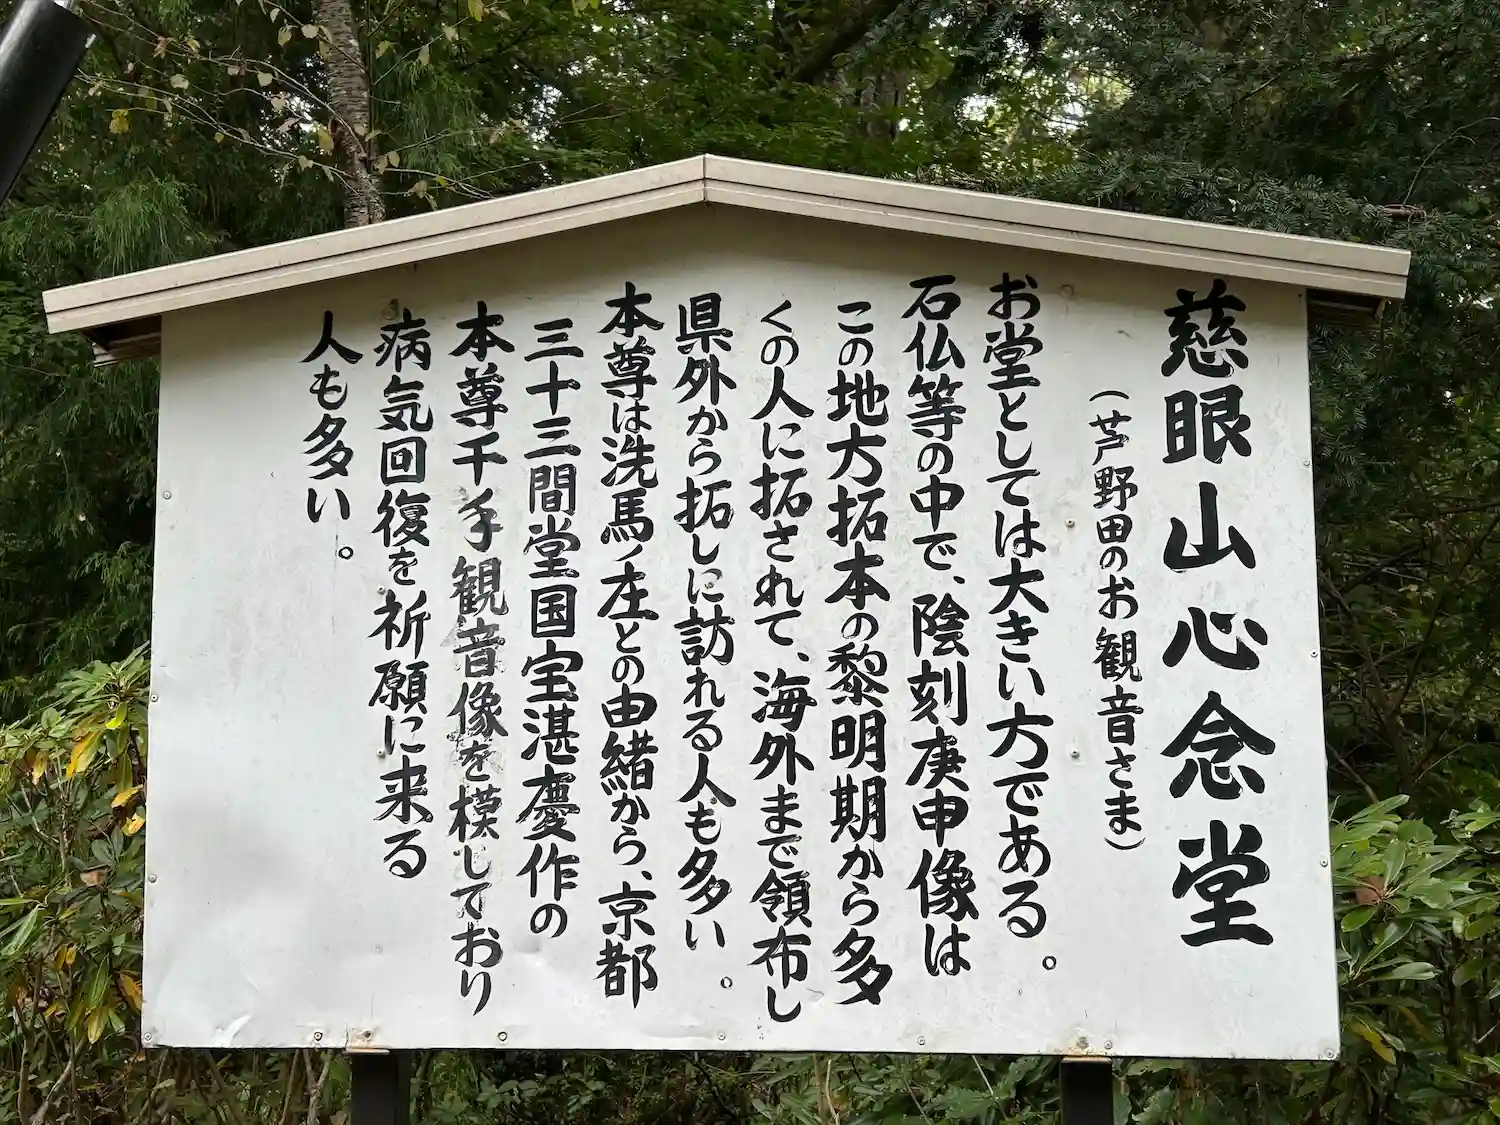 慈眼山心念堂
（芦野田のお観音さま）
お堂としては大きい方である。
石仏等の中で、陰刻庚申像は
この地方拓本の黎明期から多
くの人に拓されて、海外まで領布し
県外から拓しに訪れる人も多い。
本尊は洗馬ノ庄との由緒から、京都
三十三間堂国宝湛慶作の
本尊千手観音像を模しており
病気回復を祈願に来る
人も多い。